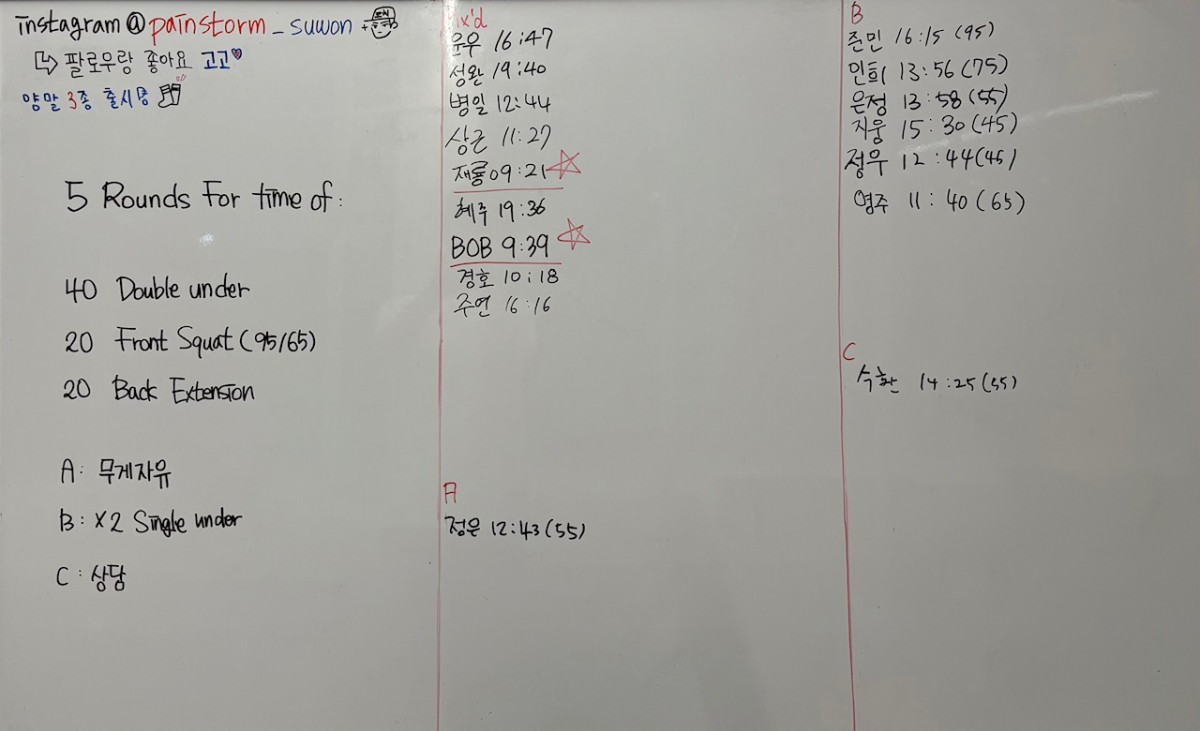 instagram@painstorm_suwon
팔로우랑 좋아요 고고
양말 3종 출시중
5 Rounds For time of:
40 Double under
20 Front Squat (95/65)
20 Back Extension
A: 무게자유
B: x2 Single under
C: 상담
x'd
윤우 16:47
성완 19:40
병일 12:44
상근 11:27
재룡 09:21
혜주 19:36
BOB 9:39
경호 10:18
주연 16:16
A
정은 12:43 (55)
B
준민 16:15 (95)
민희 13:56 (75)
은정 13:58 (55)
지웅 15:30 (45)
정우 12:44 (45)
영주 11:40 (65)
C
수환 14:25 (55)